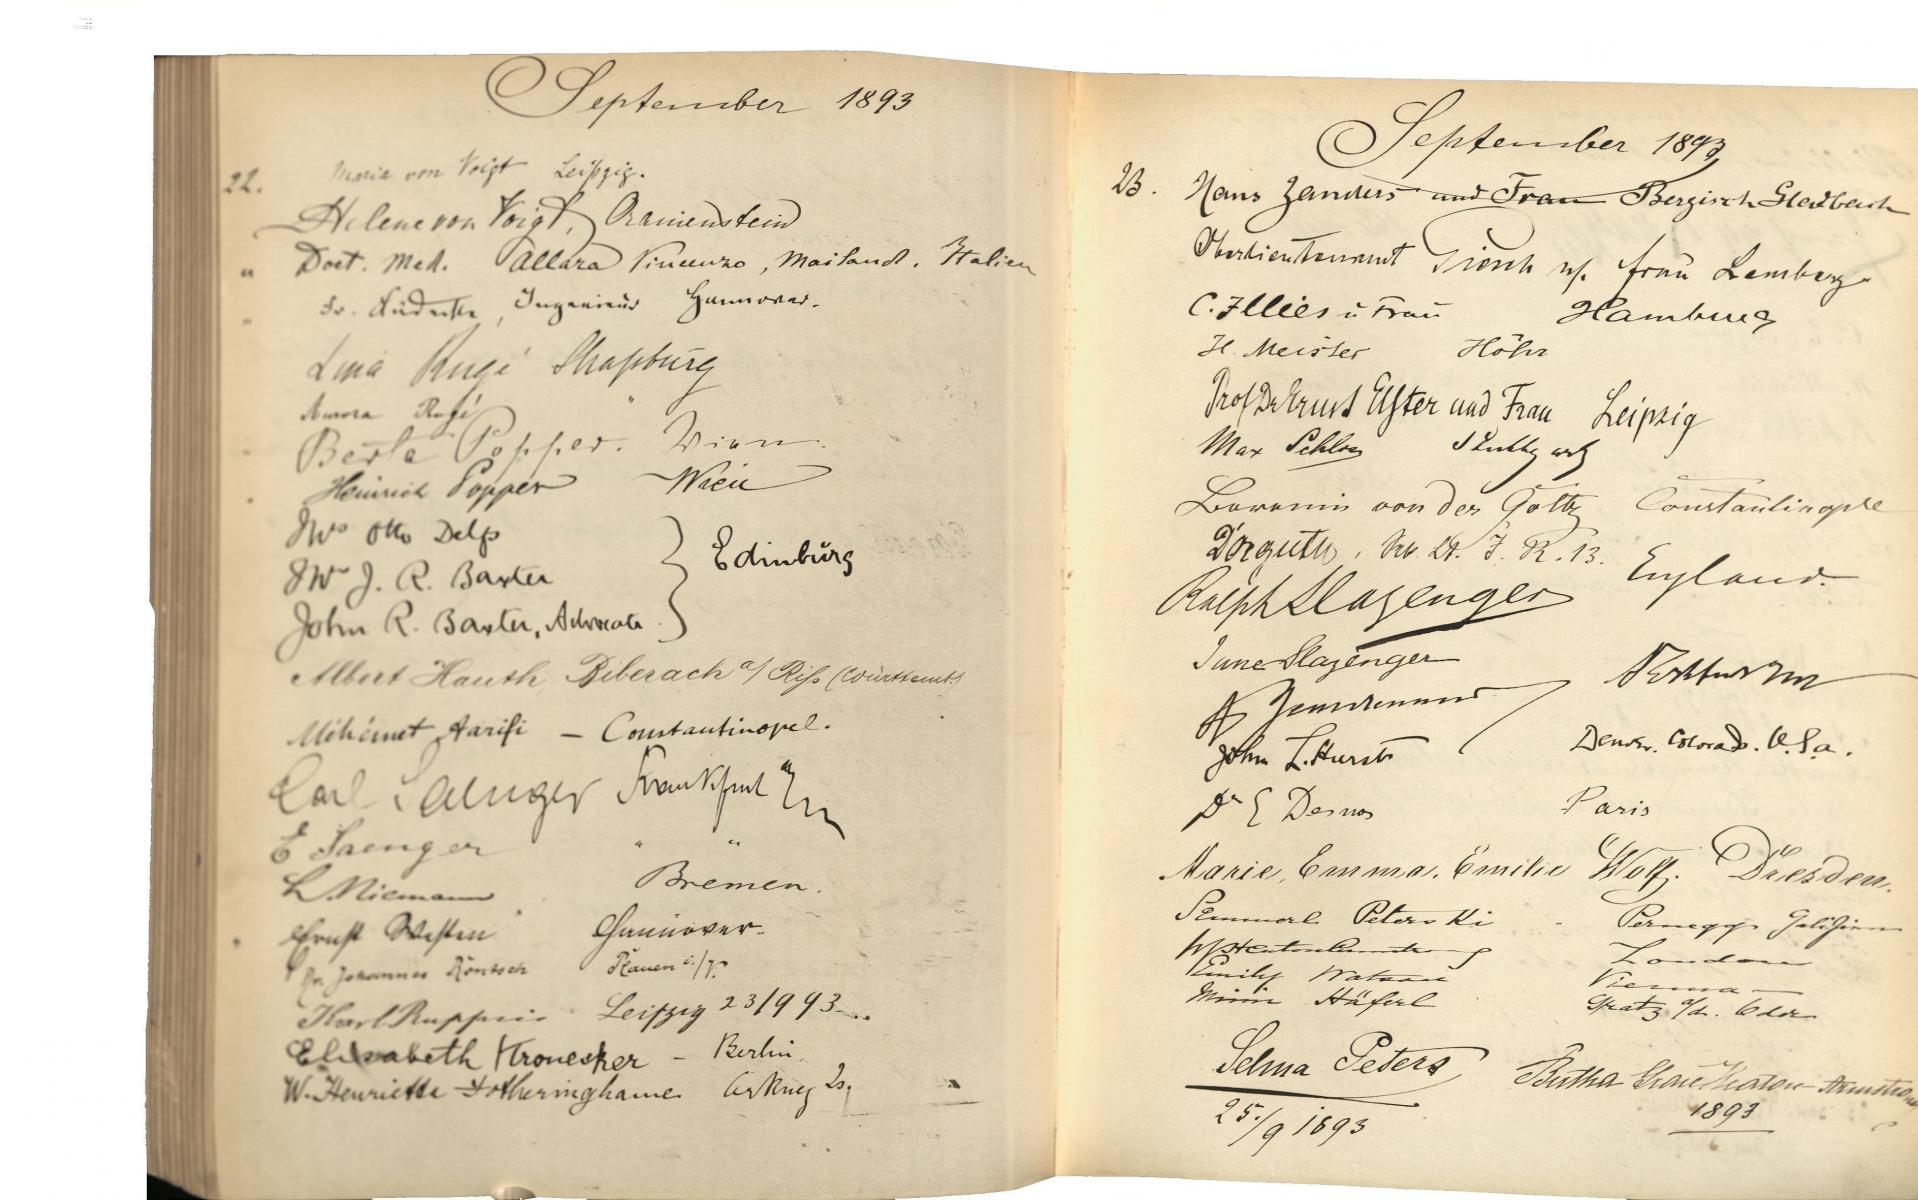 September 1893
22. Maria von Voigt Leipzig.
Helene von Voigt, Oranienstein
" Doct. Med. Allara Vincenzo, Mailand. Italien
Ingenieur Hannover.
Lina Rugé
Aurora Rugé "
Berta Popper. Wien.
Heinrich Popper Wien
Mrs Otto Delfs
Mrs J. R. Baxter
Edinburg
John R. Baxter, Advocate.
Albert Hauth, Biberach a/ Riss (Württemb.)
Méhémet Aarifi – Constantinopel.
Carl Saenger Frankfurt a/m
E Saenger " "
L. Niemann Bremen.
Ernst Westen Hannover.
Dr. Johannes Röntsch Plauen i./V.
Karl Ruppin Leipzig 23/9 93
Elisabeth Kronecker – Berlin.
W. Henrietta Fotheringhame
September 1893
23. Hans Zanders und Frau Bergisch Gladbach
Oberlieutenant u/. Frau Lemberg
C. Illies u Frau Hamburg
H. Meister Höhr
Prof Dr Ernst Elster und Frau Leipzig
Max Schloss Stuttgart
Baronin von der Goltz Constantinople
Dorguth, Sec. Lt. I. R. 13.
Ralph Slazenger England.
Jane Slazenger
Frankfurt a/m
John L. Hurst Denver. Colorado. U.S.a.
Dr E Desnos Paris
Marie, Emma, Emilie Wolf. Dresden.
Peterski Galizien
London
Emily Watson Vienna
Minni Häferl a/d. Oder
Selma Peters
25./9 1893
Bertha Grace
1893